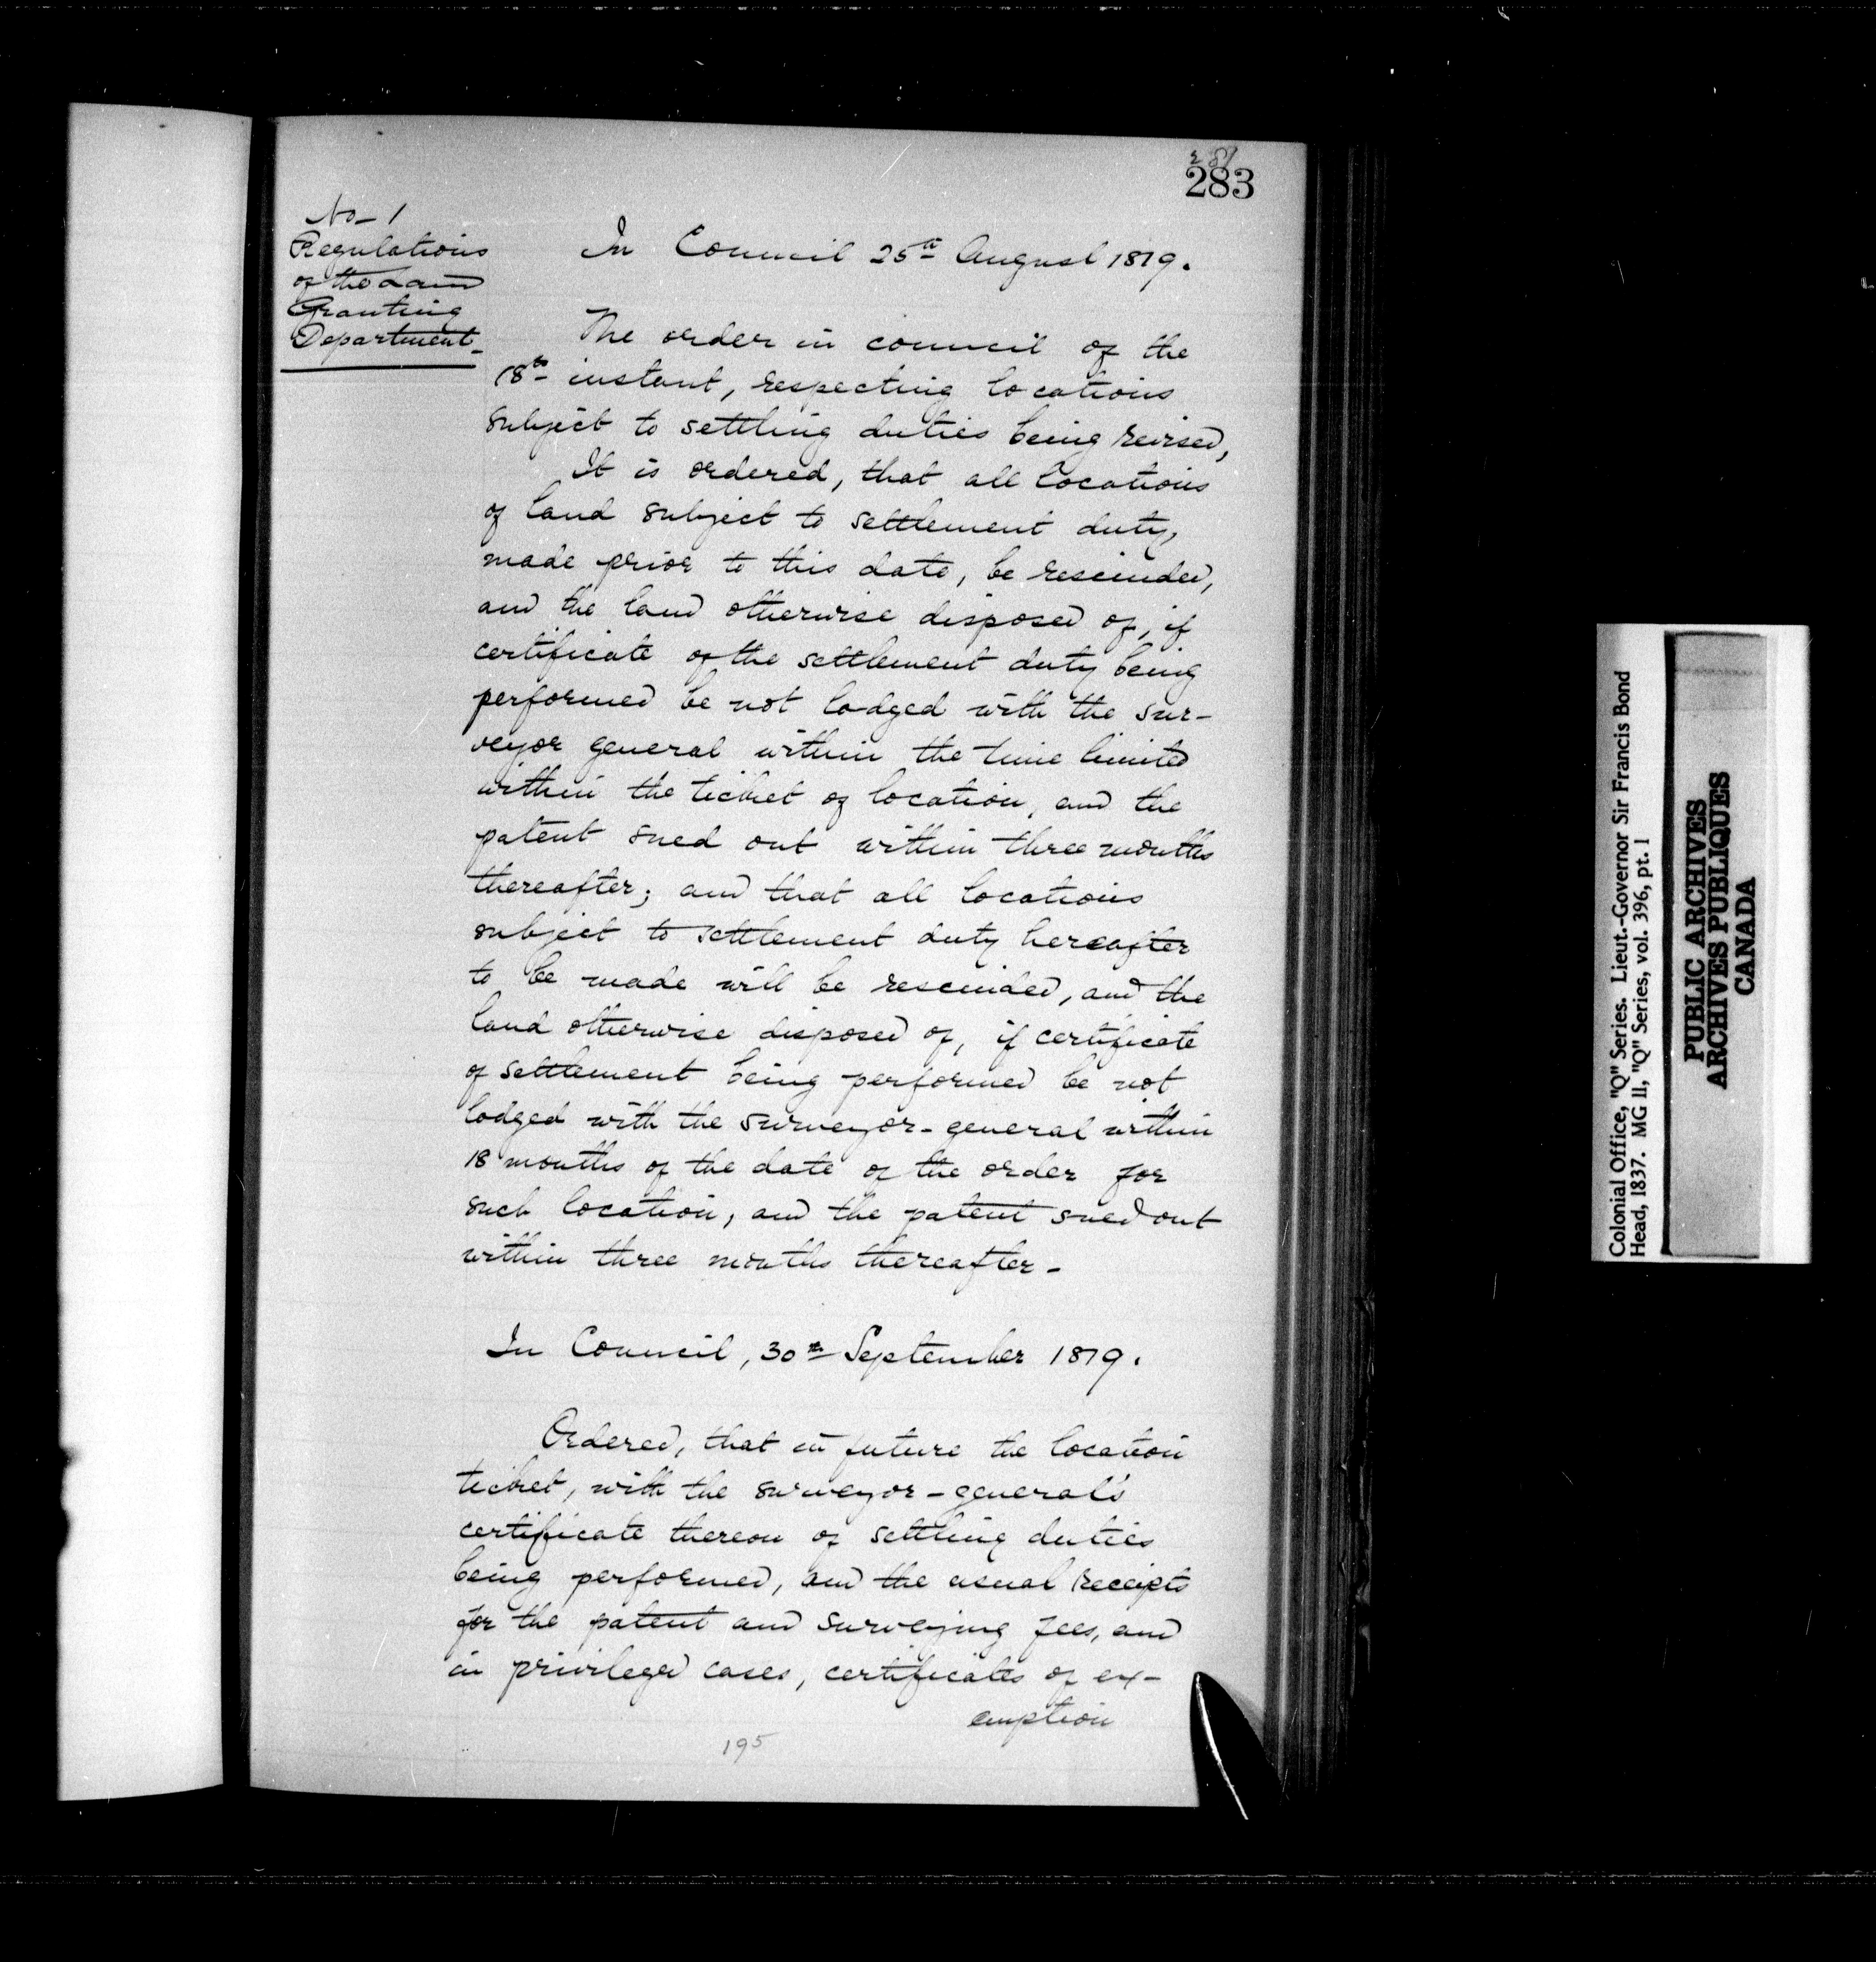 283
No - 1
Regulations
of the Land
Granting
Department -
In Council 25th August 1819.
The order in council of the
18th instant, respecting locations
subject to settling duties being revised,
It is ordered, that all locations
of land subject to settlement duty,
made prior to this date, be rescinded,
and the land otherwise disposed of, if
certificate of the settlement duty being
performed be not lodged with the sur-
veyor general within the time limited
within the ticket of location, and the
patent sued out within three months
thereafter; and that all locations
subject to settlement duty hereafter
to be made will be rescinded, and the
land otherwise disposed of, if certificate
of settlement being performed be not
lodged with the surveyor-general within
18 months of the date of the order for
such location, and the patent sued out
within three months thereafter -
In Council, 30th September 1819.
Ordered, that in future the location
ticket, with the surveyor-general's
certificate thereon of settling duties
being performed, and the usual receipts
for the patent and surveying fees, and
in privileged cases, certificates of ex-
emption
195
Colonial Office, "Q" Series. Lieut.-Governor Sir Francis Bond
Head, 1837. MG 11, "Q" Series, vol. 396, pt. 1
PUBLIC ARCHIVES
ARCHIVES PUBLIQUES
CANADA